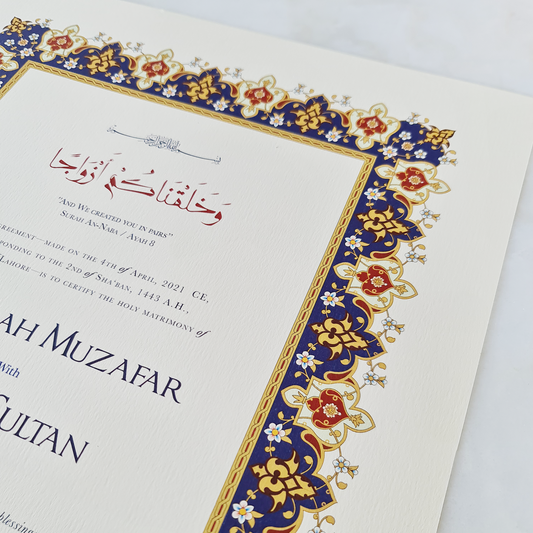 وَخَلَقْنَاكُمْ أَزْوَاجًا
"And We created you in pairs"
Surah An-Naba / Ayah 8
greement—made on the 4th of April, 2021 CE,
ponding to the 2nd of Sha'ban, 1443 A.H.,
Lahore—is to certify the holy matrimony of
ah Muzafar
With
Sultan
blessing